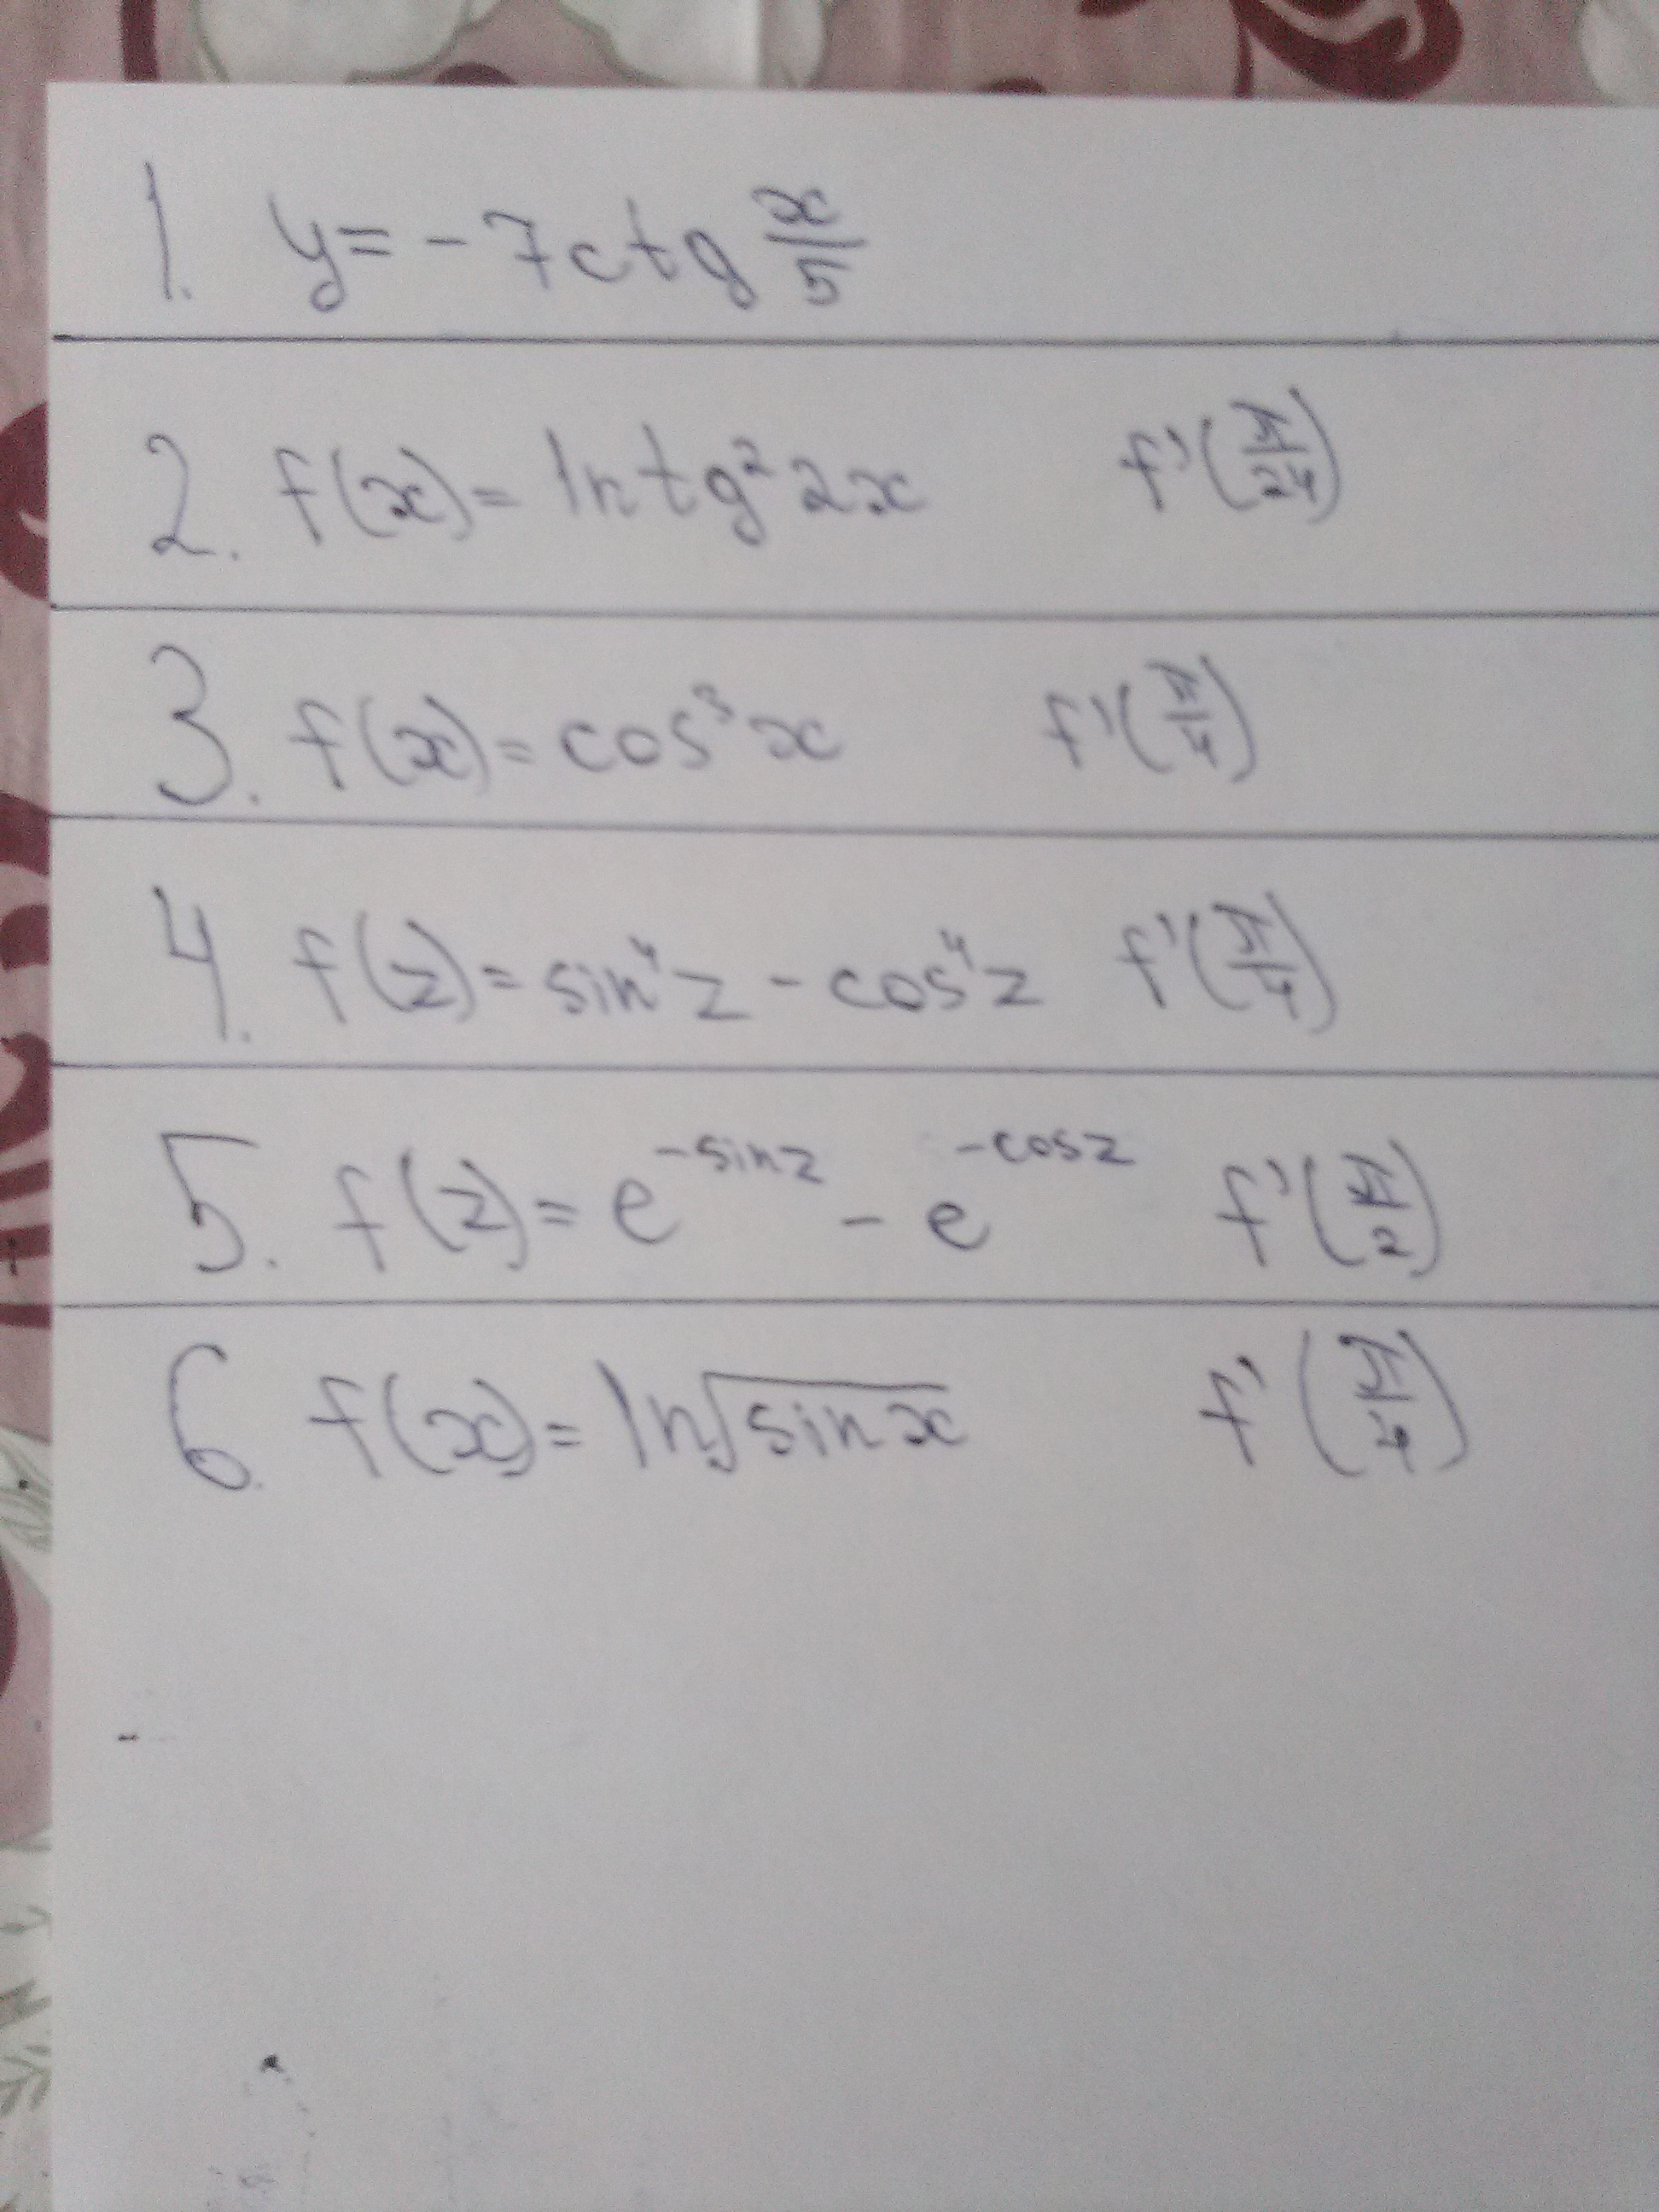 1. y = -7ctg x/5
2. f(x) = ln tg² 2x f'(π/24)
3. f(x) = cos³x f'(π/4)
4. f(z) = sin⁴z - cos⁴z f'(π/4)
5. f(z) = e^(-sinz) - e^(-cosz) f'(π/2)
6. f(x) = ln√sinx f'(π/4)